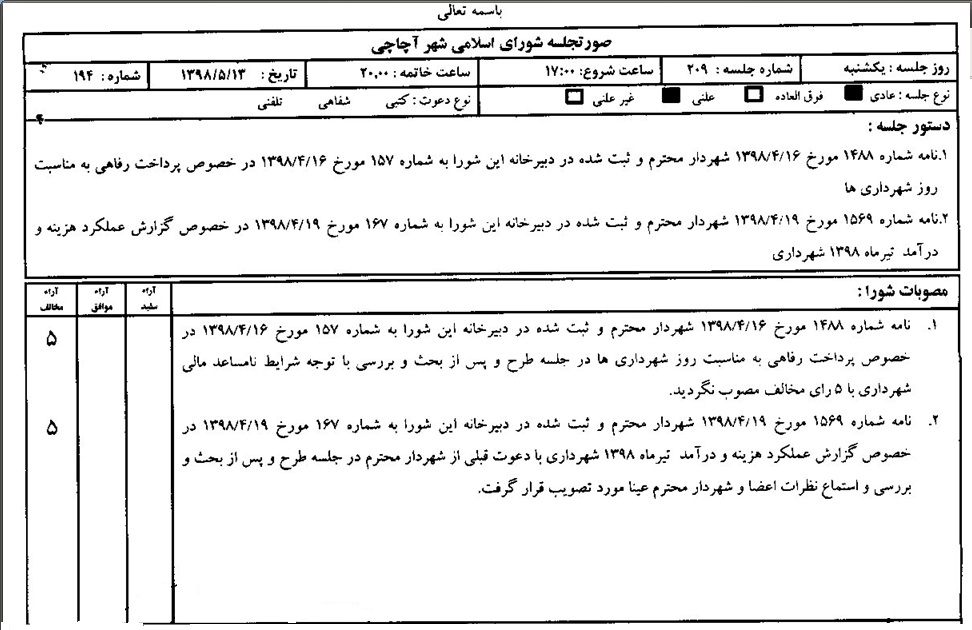 باسمه تعالی
صورتجلسه شورای اسلامی شهر آچاچی
روز جلسه : یکشنبه شماره جلسه : ۲۰۹ ساعت شروع: ۱۷:۰۰ ساعت خاتمه : ۲۰,۰۰ تاریخ : ۱۳۹۸/۵/۱۳ شماره : ۱۹۴
نوع جلسه : عادی ■ فوق العاده □ علنی ■ غیر علنی □ نوع دعوت : کتبی شفاهی تلفنی
دستور جلسه :
۱.نامه شماره ۱۴۸۸ مورخ ۱۳۹۸/۴/۱۶ شهردار محترم و ثبت شده در دبیرخانه این شورا به شماره ۱۵۷ مورخ ۱۳۹۸/۴/۱۶ در خصوص پرداخت رفاهی به مناسبت
روز شهرداری ها
۲.نامه شماره ۱۵۶۹ مورخ ۱۳۹۸/۴/۱۹ شهردار محترم و ثبت شده در دبیرخانه این شورا به شماره ۱۶۷ مورخ ۱۳۹۸/۴/۱۹ در خصوص گزارش عملکرد هزینه و
درآمد تیرماه ۱۳۹۸ شهرداری
مصوبات شورا : آراء سفید آراء موافق آراء مخالف
۱. نامه شماره ۱۴۸۸ مورخ ۱۳۹۸/۴/۱۶ شهردار محترم و ثبت شده در دبیرخانه این شورا به شماره ۱۵۷ مورخ ۱۳۹۸/۴/۱۶ در ۵
خصوص پرداخت رفاهی به مناسبت روز شهرداری ها در جلسه طرح و پس از بحث و بررسی با توجه شرایط نامساعد مالی
شهرداری با ۵ رای مخالف مصوب نگردید.
۲. نامه شماره ۱۵۶۹ مورخ ۱۳۹۸/۴/۱۹ شهردار محترم و ثبت شده در دبیرخانه این شورا به شماره ۱۶۷ مورخ ۱۳۹۸/۴/۱۹ در ۵
خصوص گزارش عملکرد هزینه و درآمد تیرماه ۱۳۹۸ شهرداری با دعوت قبلی از شهردار محترم در جلسه طرح و پس از بحث و
بررسی و استماع نظرات اعضا و شهردار محترم عینا مورد تصویب قرار گرفت.